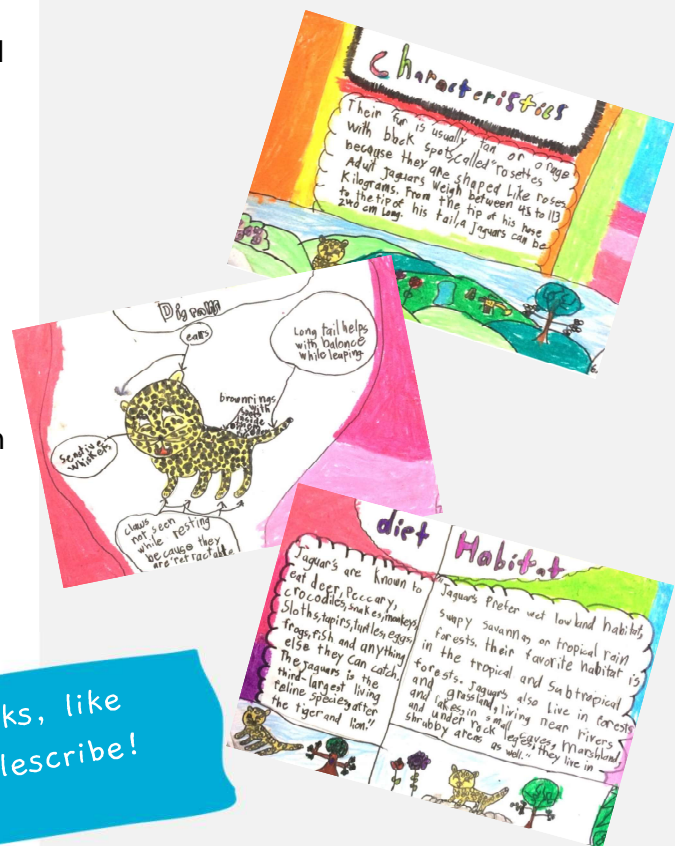 Characteristics
Their fur is usually tan or orage
with black spots, called "rosettes
because they are shaped like roses.
Adult Jaguars weigh between 45 to 113
Kilograms. From the tip of his nose
to the tip of his tail, a Jaguars can be
240 cm long.
6.
ears
Long tail helps
with balance
while leaping
brownrings
with
inside
Senstive
Whiskers
claws
not seen
while resting
because they
are retractable
diet
Jaguar's are known to
eat deer, Peccary,
crocodiles, snakes, monkeys,
Sloths, tapirs, turtles, eggs,
frogs, fish and anything
else they can catch.
The Jaguars is the
third-largest living
feline species, after
the tiger and lion."
Habitat
Jaguars Prefer wet lowland habitat,
swapy savannas or tropical rain
forests. their favorite habitat is
in the tropical and subtropical
forests. Jaguars also live in forests
and grassland, living near rivers
and lakes, in small caves, marshland,
and under rock leges, they live in
shrubby areas as well."
ks, like
escribe!